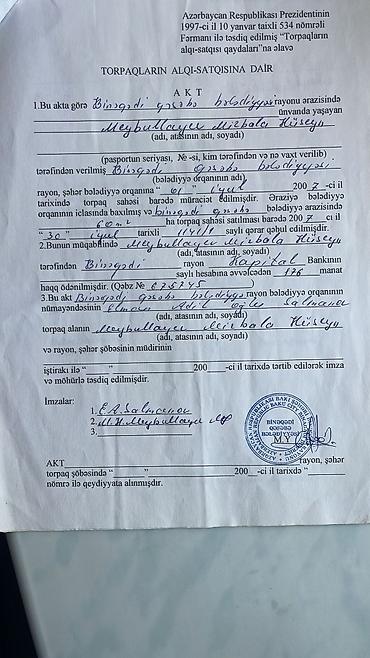 Azərbaycan Respublikası Prezidentinin
1997-ci il 10 yanvar taixli 534 nömrəli
Fərmanı ilə təsdiq edilmiş "Torpaqların
alqı-satqısı qaydaları"na əlavə
TORPAQLARIN ALQI-SATQISINA DAİR
A K T
1.Bu akta görə Binəqədi qəsəbə bələdiyyəsi rayonu ərazisində
ünvanda yaşayan
Meybullayev Mirbala Hüseyn
(adı, atasının adı, soyadı)
(pasportun seriyası, № -si, kim tərəfindən və nə vaxt verilib)
tərəfindən verilmiş Binəqədi qəsəbə bələdiyyəsi
(bələdiyyə orqanının adı)
rayon, şəhər bələdiyyə orqanına "01" iyul 2007-ci il
tarixində torpaq sahəsi barədə müraciət edilmişdir. Əraziyə bələdiyyə
orqanının iclasında baxılmış və binəqədi qəsəbə bələdiyyə ərazisində
60 m² ha torpaq sahəsi satılması barədə 2007 cı il
"30" iyul tarixli 114/1 saylı qərar qəbul edilmişdir.
2.Bunun müqabilində Meybullayev Mirbala Hüseyn
(adı, atasının adı, soyadı)
tərəfindən Binəqədi rayon Kapital Bankının
saylı hesabına əvvəlcədən 176 manat
haqq ödənilmişdir. (Qəbz № 675745 )
3.Bu akt Binəqədi qəsəbə bələdiyyə rayon bələdiyyə orqanının
nümayəndəsinin Elman Adil oğlu Salmanov
(adı, atasının adı, soyadı)
torpaq alanın Meybullayev Mirbala Hüseyn
(adı, atasının adı, soyadı)
və rayon, şəhər şöbəsinin müdirinin
iştirakı ilə "____" ________ 200__-ci il tarixdə tərtib edilərək imza
və möhürlə təsdiq edilmişdir.
İmzalar:
1. E.A.Salmanov
2. M.H.Meybullayev
3.
BİNƏQƏDİ
QƏSƏBƏ
BƏLƏDİYYƏSİ
M.Y
AKT________ rayon, şəhər
torpaq şöbəsində "____" ________ 200__-ci il tarixdə "____
nömrə ilə qeydiyyata alınmışdır.